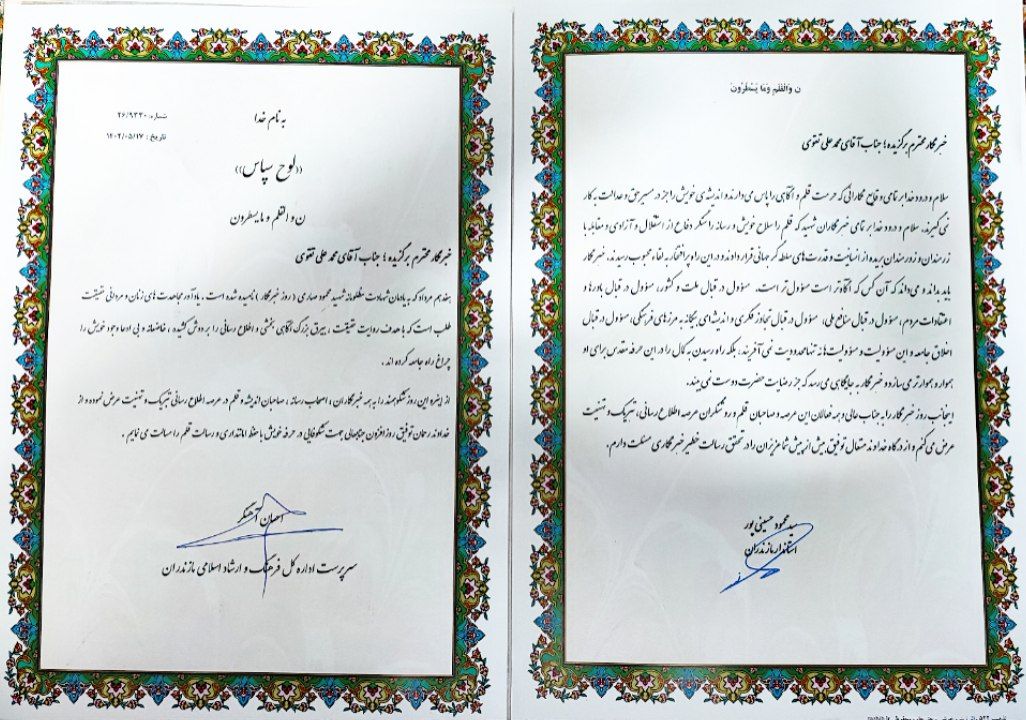 ن وَالْقَلَمِ وَمَا يَسْطُرُونَ
خبرنگار محترم برگزیده؛ جناب آقای محمد علی تقوی
سلام و درود خدا بر تمامی وقایع نگارانی که حرمت قلم و آگاهی را پاس می‌دارند و اندیشه‌ی خویش را جز در مسیر حق و عدالت به کار
نمی‌گیرند. سلام و درود خدا بر تمامی خبرنگاران شهید که قلم را سلاح خویش و رسانه را سنگر دفاع از استقلال و آزادی و مقابله با
زرمندان و زورمندان بریده از انسانیت و قدرت‌های سلطه گر جهانی قرار دادند و در این راه پرافتخار به لقاء محبوب رسیدند. خبرنگار
باید بداند و می‌داند که آن کس که آگاه‌تر است مسؤول‌تر است. مسؤول در قبال ملت و کشور، مسؤول در قبال باورها و
اعتقادات مردم، مسؤول در قبال منافع ملی، مسؤول در قبال تجاوز فکری و اندیشه‌ای بیگانه به مرزهای فرهنگی، مسؤول در قبال
اخلاق جامعه و این مسؤولیت و مسؤولیت‌ها نه تنها محدودیت نمی‌آفریند، بلکه راه رسیدن به کمال را در این حرفه مقدس برای او
هموار و هموارتر می‌سازد و خبرنگار به جایگاهی می‌رسد که جز رضایت حضرت دوست نمی‌بیند.
اینجانب روز خبرنگار را به جناب عالی و همه فعالان این عرصه و صاحبان قلم و روشنگران عرصه اطلاع رسانی، تبریک و تهنیت
عرض می‌کنم و از درگاه خداوند متعال توفیق بیش از پیش شما عزیزان را در تحقق رسالت خطیر خبرنگاری مسئلت دارم.
سید محمود حسینی پور
استاندار مازندران
شماره: ۲۶/۹۳۳۰
به نام خدا
تاریخ: ۱۴۰۲/۰۵/۱۷
((لوح سپاس))
ن و القلم و ما یسطرون
خبرنگار محترم برگزیده؛ جناب آقای محمد علی تقوی
هفدهم مرداد که به یادمان شهادت مظلومانه شهید محمود صارمی (روز خبرنگار) نامیده شده است، یادآور مجاهدت های زنان و مردانی حقیقت
طلب است که با هدف روایت حقیقت، بیرق بزرگ آگاهی بخشی و اطلاع رسانی را بر دوش کشیده، خاضعانه و بی ادعا وجود خویش را
چراغ راه جامعه کرده اند.
از اینرو این روز شکوهمند را به همه خبرنگاران، اصحاب رسانه، صاحبان اندیشه و قلم در عرصه اطلاع رسانی تبریک و تهنیت عرض نموده و از
خداوند رحمان توفیق روزافزون جنابعالی جهت شکوفایی در حرفه خویش با حفظ امانتداری و رسالت قلم را مسالت می نمایم.
احسان آهنگر
سرپرست اداره کل فرهنگ و ارشاد اسلامی مازندران